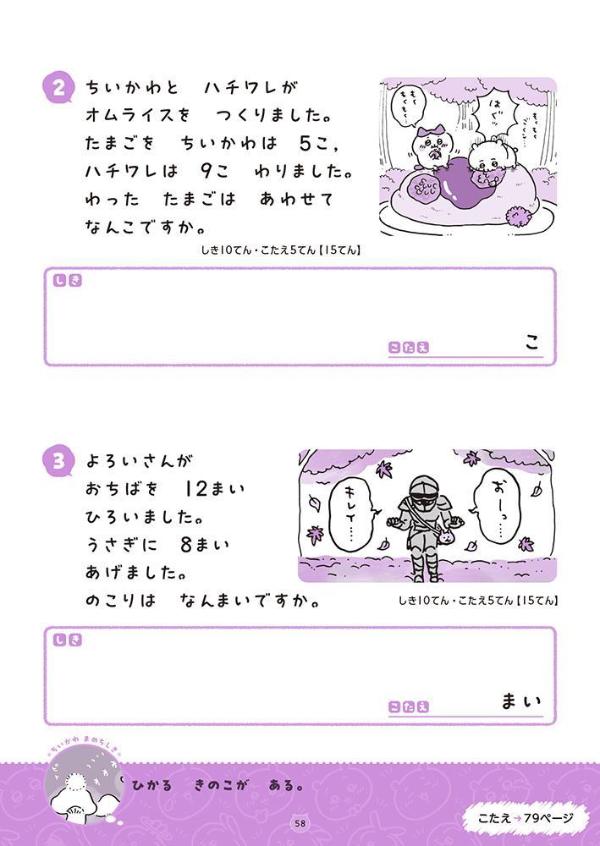 2
ちいかわと ハチワレが
オムライスを つくりました。
たまごを ちいかわは 5こ,
ハチワレは 9こ わりました。
わった たまごは あわせて
なんこですか。
しき10てん・こたえ5てん【15てん】
はぐっ
しき
こたえ
こ
3
よろいさんが
おちばを 12まい
ひろいました。
うさぎに 8まい
あげました。
のこりは なんまいですか。
おーっ…
キレイ…
しき10てん・こたえ5てん【15てん】
しき
こたえ
まい
ちいかわ まめちしき
ひかる きのこが ある。
58
こたえ→79ページ